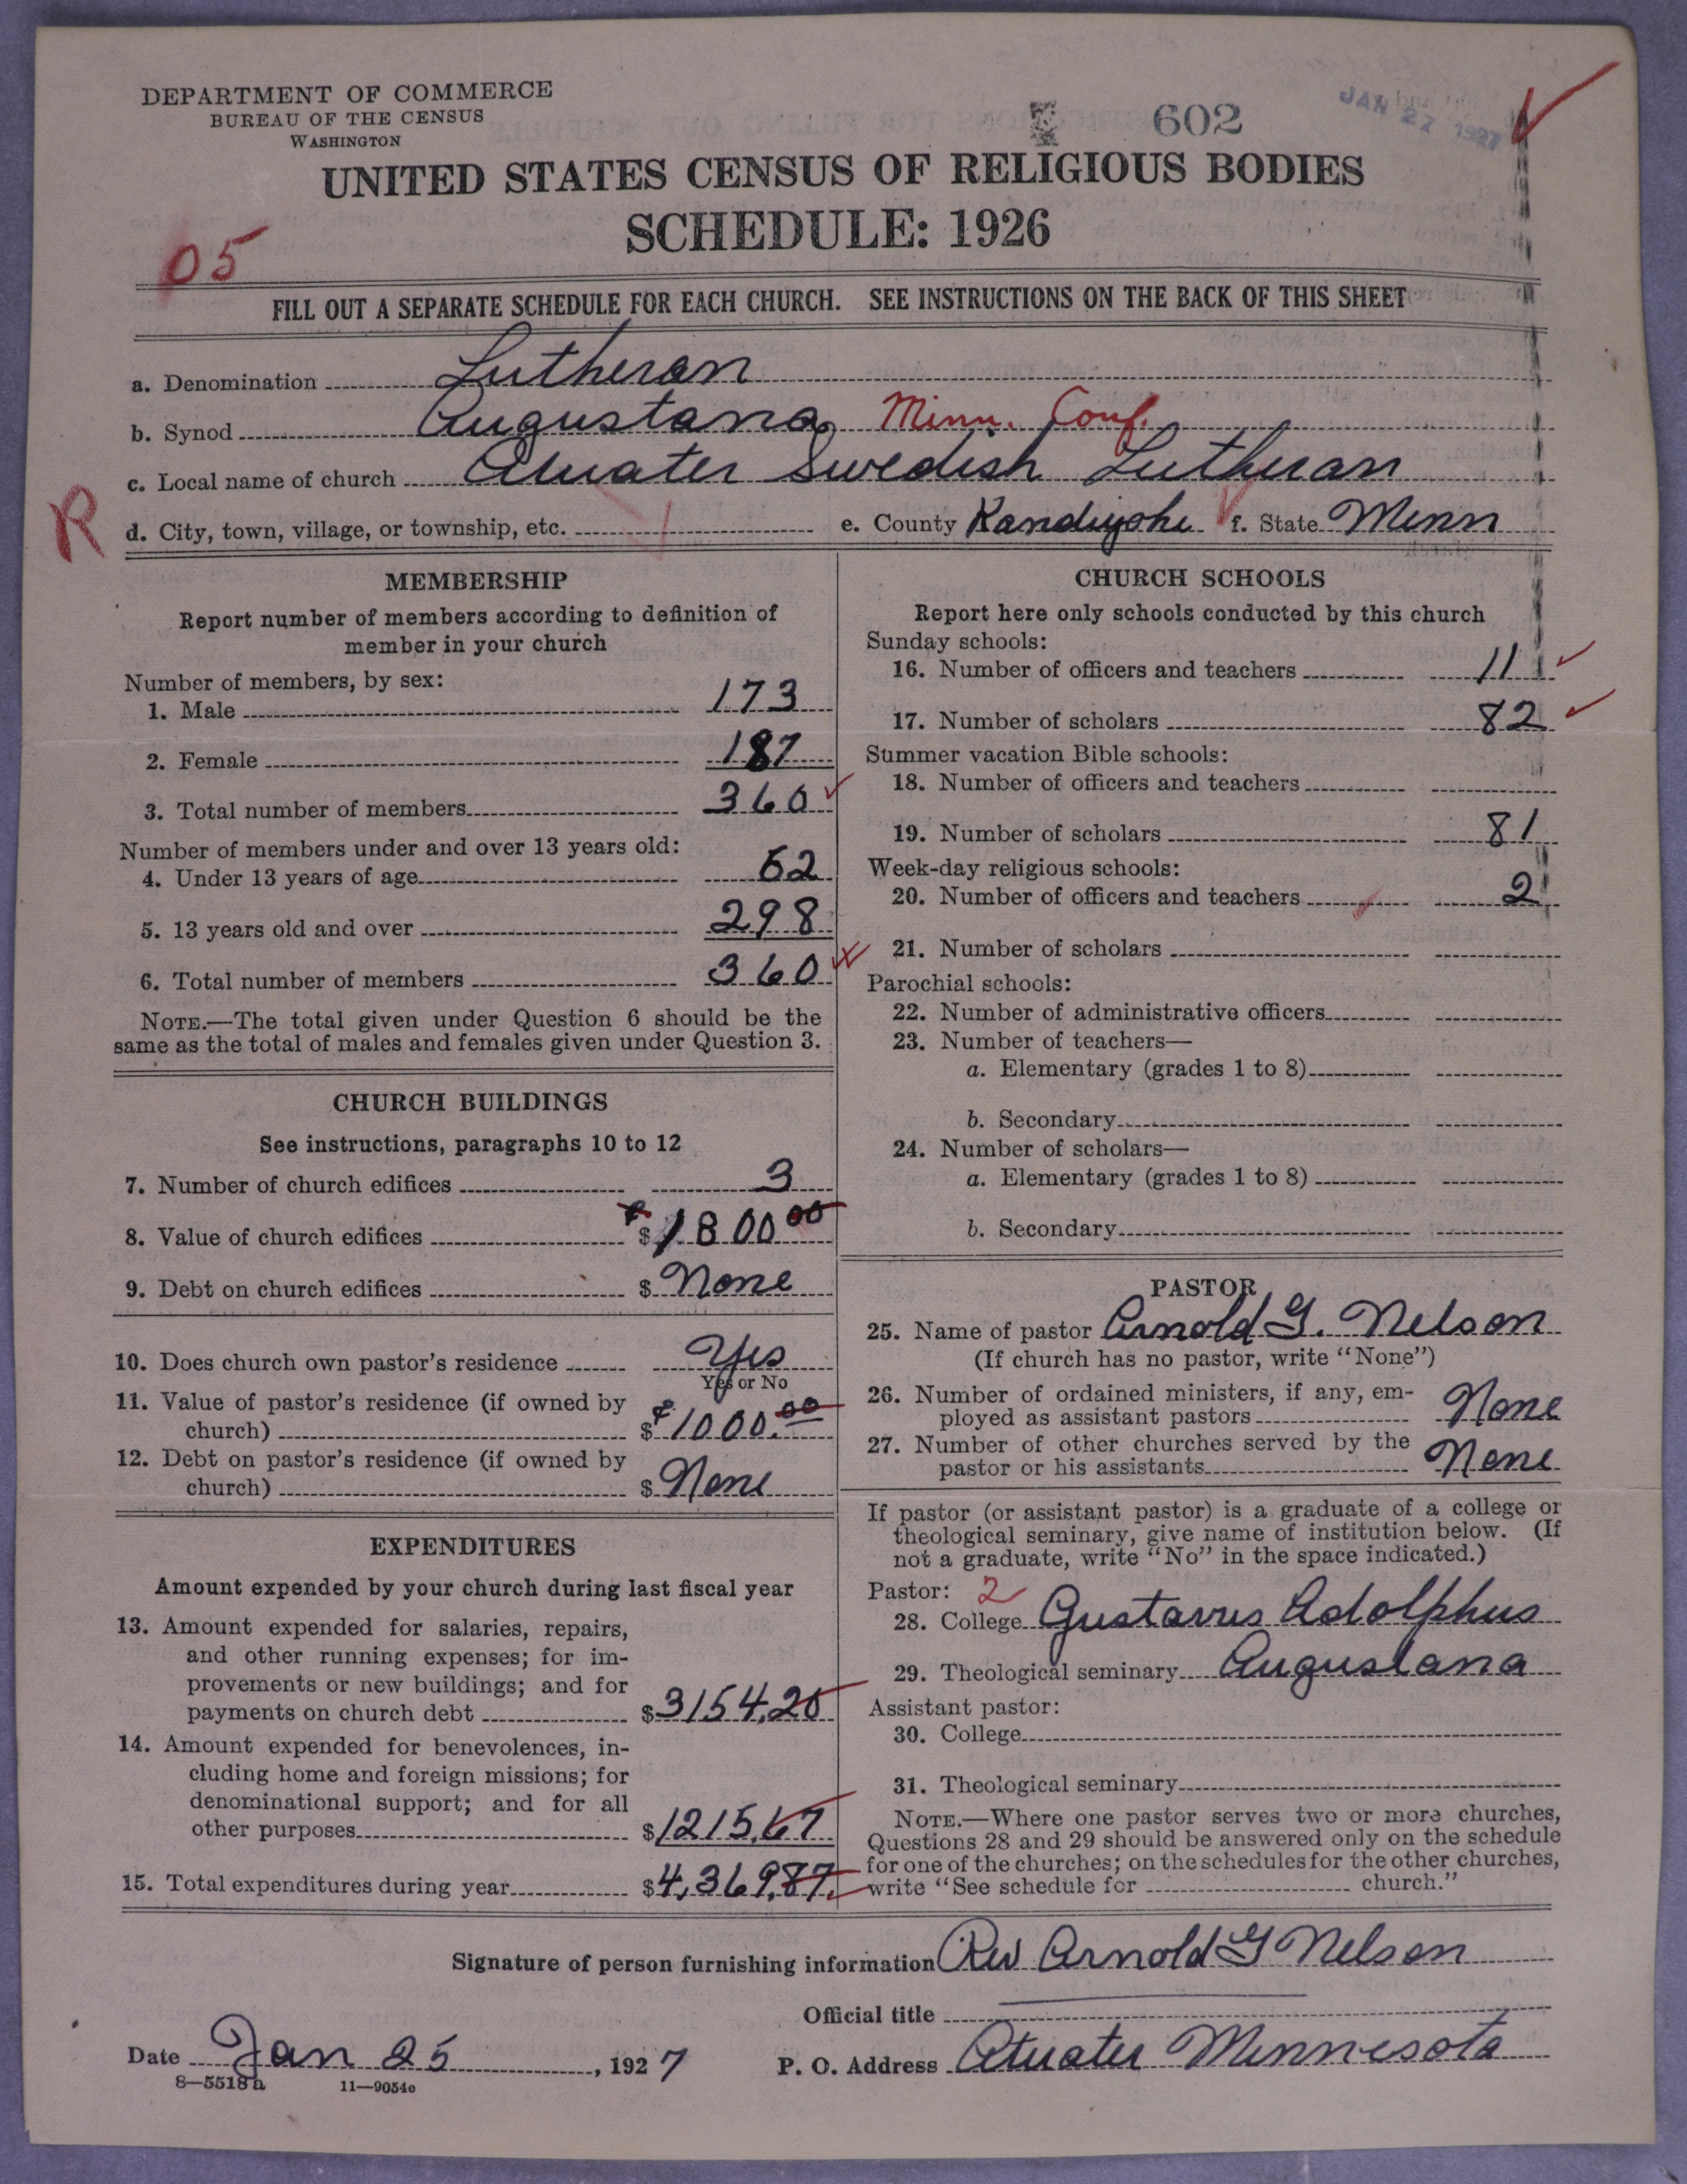 DEPARTMENT OF COMMERCE
BUREAU OF THE CENSUS
WASHINGTON
602
JAN 27 1927
UNITED STATES CENSUS OF RELIGIOUS BODIES
SCHEDULE: 1926
05
FILL OUT A SEPARATE SCHEDULE FOR EACH CHURCH. SEE INSTRUCTIONS ON THE BACK OF THIS SHEET
a. Denomination Lutheran
b. Synod Augustana Minn. Conf.
c. Local name of church Atwater Swedish Lutheran
R
d. City, town, village, or township, etc. e. County Kandiyohi f. State Minn
MEMBERSHIP
Report number of members according to definition of
member in your church
Number of members, by sex:
1. Male 173
2. Female 187
3. Total number of members 360
Number of members under and over 13 years old:
4. Under 13 years of age 62
5. 13 years old and over 298
6. Total number of members 360
NOTE.—The total given under Question 6 should be the
same as the total of males and females given under Question 3.
CHURCH BUILDINGS
See instructions, paragraphs 10 to 12
7. Number of church edifices 3
8. Value of church edifices $ 1800 00
9. Debt on church edifices $ None
10. Does church own pastor's residence Yes
Yes or No
11. Value of pastor's residence (if owned by
church) $ 1000.00
12. Debt on pastor's residence (if owned by
church) $ None
EXPENDITURES
Amount expended by your church during last fiscal year
13. Amount expended for salaries, repairs,
and other running expenses; for im-
provements or new buildings; and for
payments on church debt $ 3154.20
14. Amount expended for benevolences, in-
cluding home and foreign missions; for
denominational support; and for all
other purposes $ 1215.67
15. Total expenditures during year $ 4,369.87
CHURCH SCHOOLS
Report here only schools conducted by this church
Sunday schools:
16. Number of officers and teachers 11
17. Number of scholars 82
Summer vacation Bible schools:
18. Number of officers and teachers
19. Number of scholars 81
Week-day religious schools:
20. Number of officers and teachers 2
21. Number of scholars
Parochial schools:
22. Number of administrative officers
23. Number of teachers—
a. Elementary (grades 1 to 8)
b. Secondary
24. Number of scholars—
a. Elementary (grades 1 to 8)
b. Secondary
PASTOR
25. Name of pastor Arnold G. Nelson
(If church has no pastor, write "None")
26. Number of ordained ministers, if any, em-
ployed as assistant pastors None
27. Number of other churches served by the
pastor or his assistants None
If pastor (or assistant pastor) is a graduate of a college or
theological seminary, give name of institution below. (If
not a graduate, write "No" in the space indicated.)
Pastor: 2
28. College Gustavus Adolphus
29. Theological seminary Augustana
Assistant pastor:
30. College
31. Theological seminary
NOTE.—Where one pastor serves two or more churches,
Questions 28 and 29 should be answered only on the schedule
for one of the churches; on the schedules for the other churches,
write "See schedule for church."
Signature of person furnishing information Rev Arnold G Nelson
Official title
Date Jan 25, 1927 P. O. Address Atwater Minnesota
8—5518 a 11—9054e